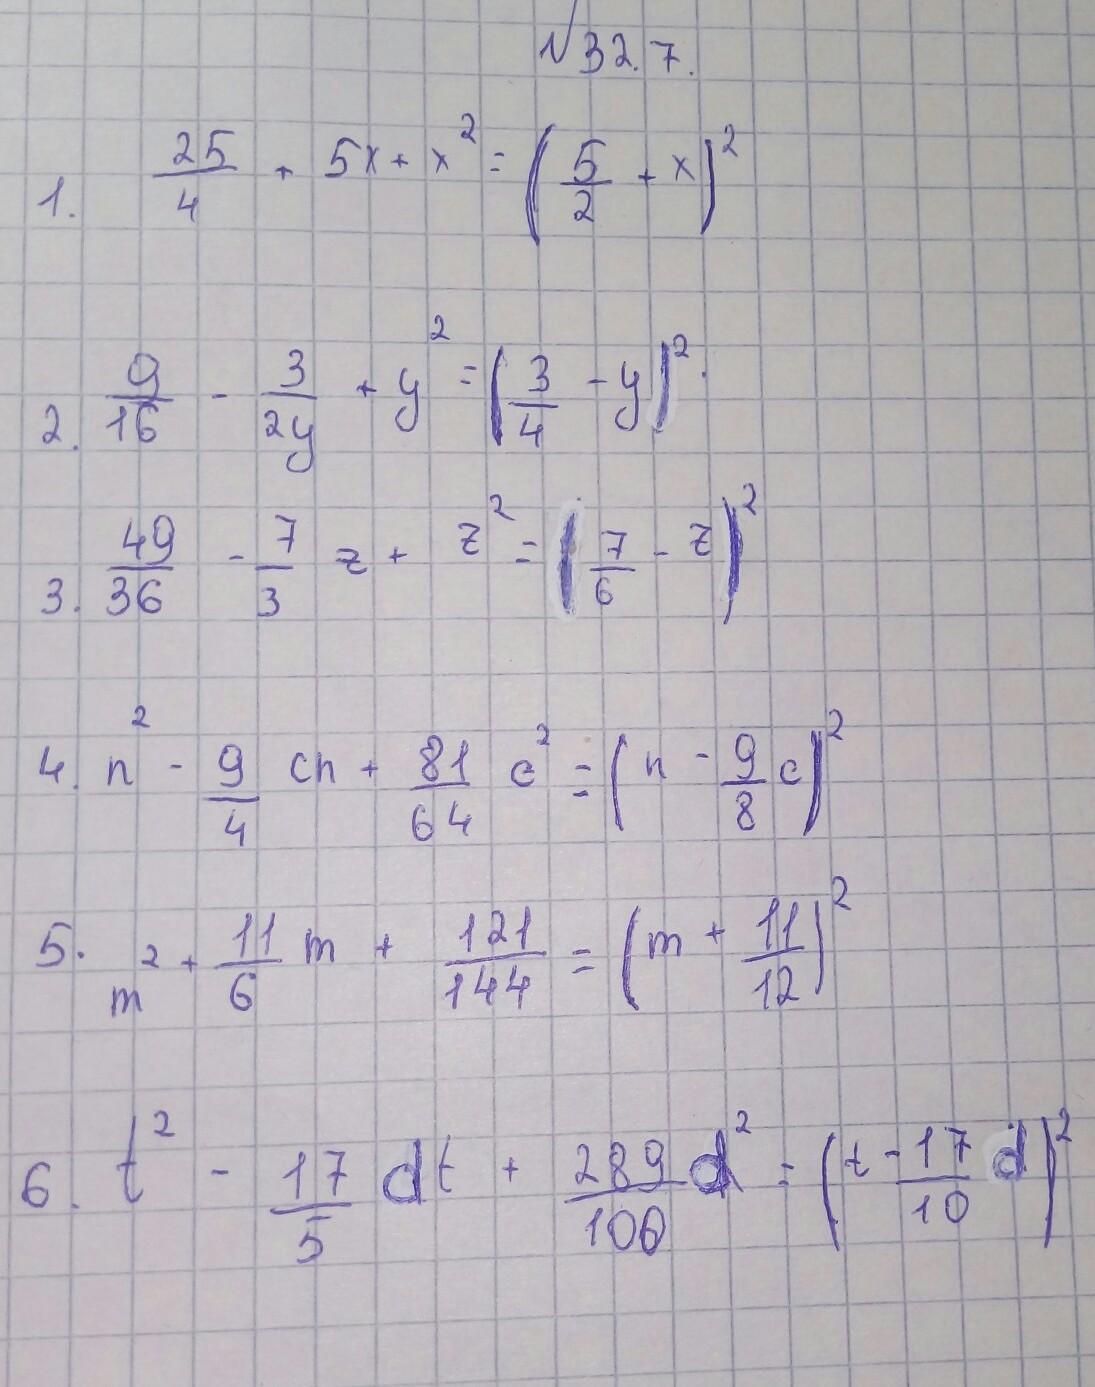 №32.7.
1. 25/4 + 5x + x² = (5/2 + x)²
2. 9/16 - 3/2y + y² = (3/4 - y)².
3. 49/36 - 7/3 z + z² = (7/6 - z)²
4. n² - 9/4 cn + 81/64 c² = (n - 9/8 c)²
5. m² + 11/6 m + 121/144 = (m + 11/12)²
6. t² - 17/5 dt + 289/100 d² = (t - 17/10 d)²